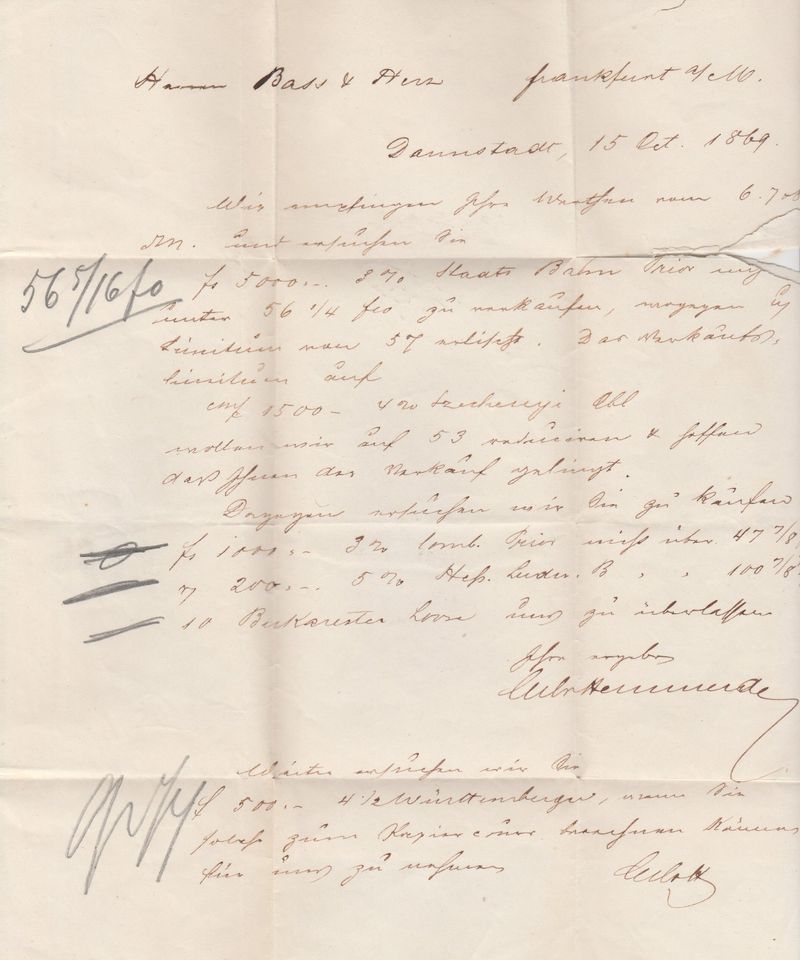 Herren Bass & Herz Frankfurt a/M.
Darmstadt, 15 Oct. 1869.
Wir empfingen Ihr Werthes vom 6.
und ersuchen Sie
fs 5000.-. 3% Staats Bahn Prior
56 5/16 fo
unter 56 1/4 fco zu verkaufen, wogegen
Limitum von 57 erlischt. Das Verkaufs-
limitum auf
1500 - 4% Szechenyi Obl
wollen wir auf 53 reduciren & hoffen
dass Ihnen der Verkauf gelingt.
Dagegen ersuchen wir Sie zu kaufen
fs 1000.-. 3% lomb. Prior nicht über 47 7/8
200.-. 5% Hess. Ludw. B " " 100 7/8
10 Bukarester Loose uns zu überlassen
Ihre ergeb
Weiter ersuchen wir Sie
f 500.- 4 1/2 Württemberger, wenn Sie
solche zum Papier cours berechnen können
für uns zu nehmen